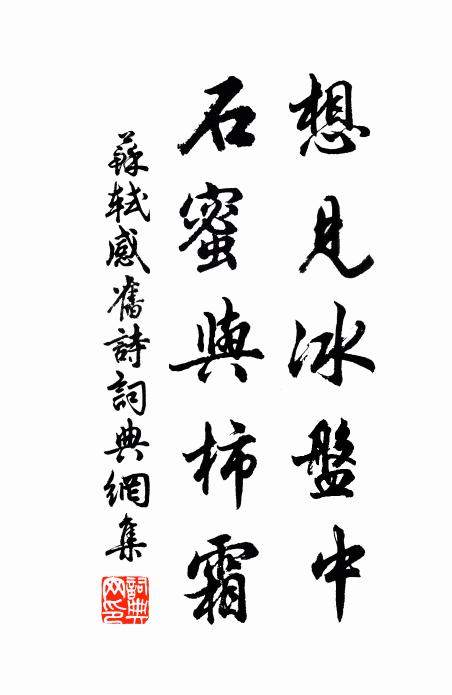 想見冰盤中
石蜜與柿霜
蘇軾感舊詩詞典網集
詞典網印